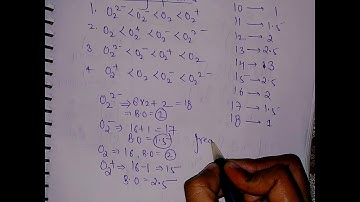 1. O₂²⁻ < O₂⁻ < O₂ < O₂⁺
2. O₂ < O₂⁺ < O₂⁻ < O₂²⁻
3. O₂²⁻ < O₂⁻ < O₂⁺ < O₂
4. O₂⁺ < O₂ < O₂⁻ < O₂²⁻
O₂²⁻ ⇒ 8×2+2 = 18
⇒ B.O = 1
O₂⁻ ⇒ 16+1 = 17
B.O = 1.5
O₂ ⇒ 16, B.O = 2
O₂⁺ ⇒ 16-1 ⇒ 15
B.O = 2.5
10 → 1
11 → 1.5
12 → 2
13 → 2.5
14 → 3
15 → 2.5
16 → 2
17 → 1.5
18 → 1